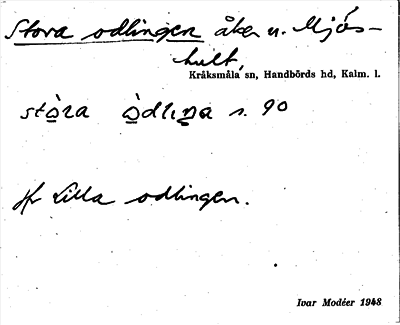 Stora odlingen åker u. Mjös-
hult,
Kråksmåla sn, Handbörds hd, Kalm. l.
stò̲ra ò̲dlıṉa s. 90
Jfr Lilla odlingen.
Ivar Modéer 1948